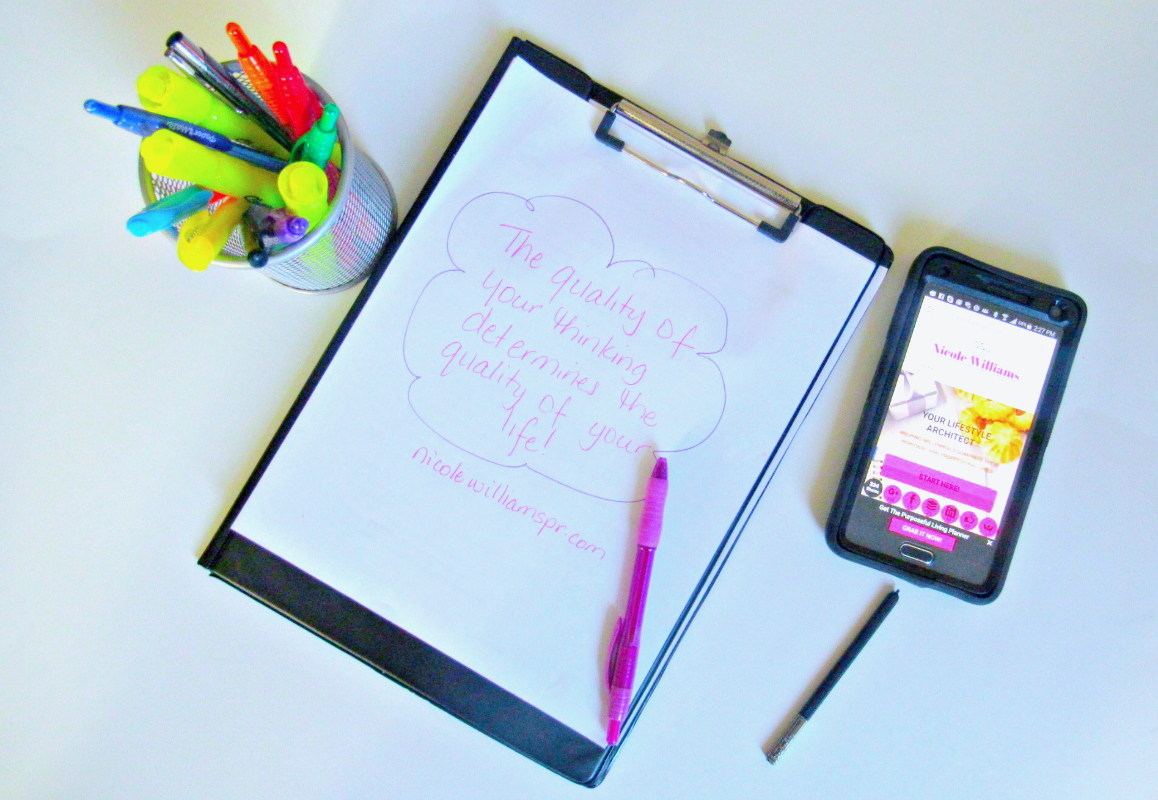 The quality of
your thinking
determines the
quality of your
life!
nicolewilliamspr.com
PaperMate
2:27 PM
Nicole Williams
YOUR LIFESTYLE
ARCHITECT
START HERE!
Get The Purposeful Living Planner
GRAB IT NOW!